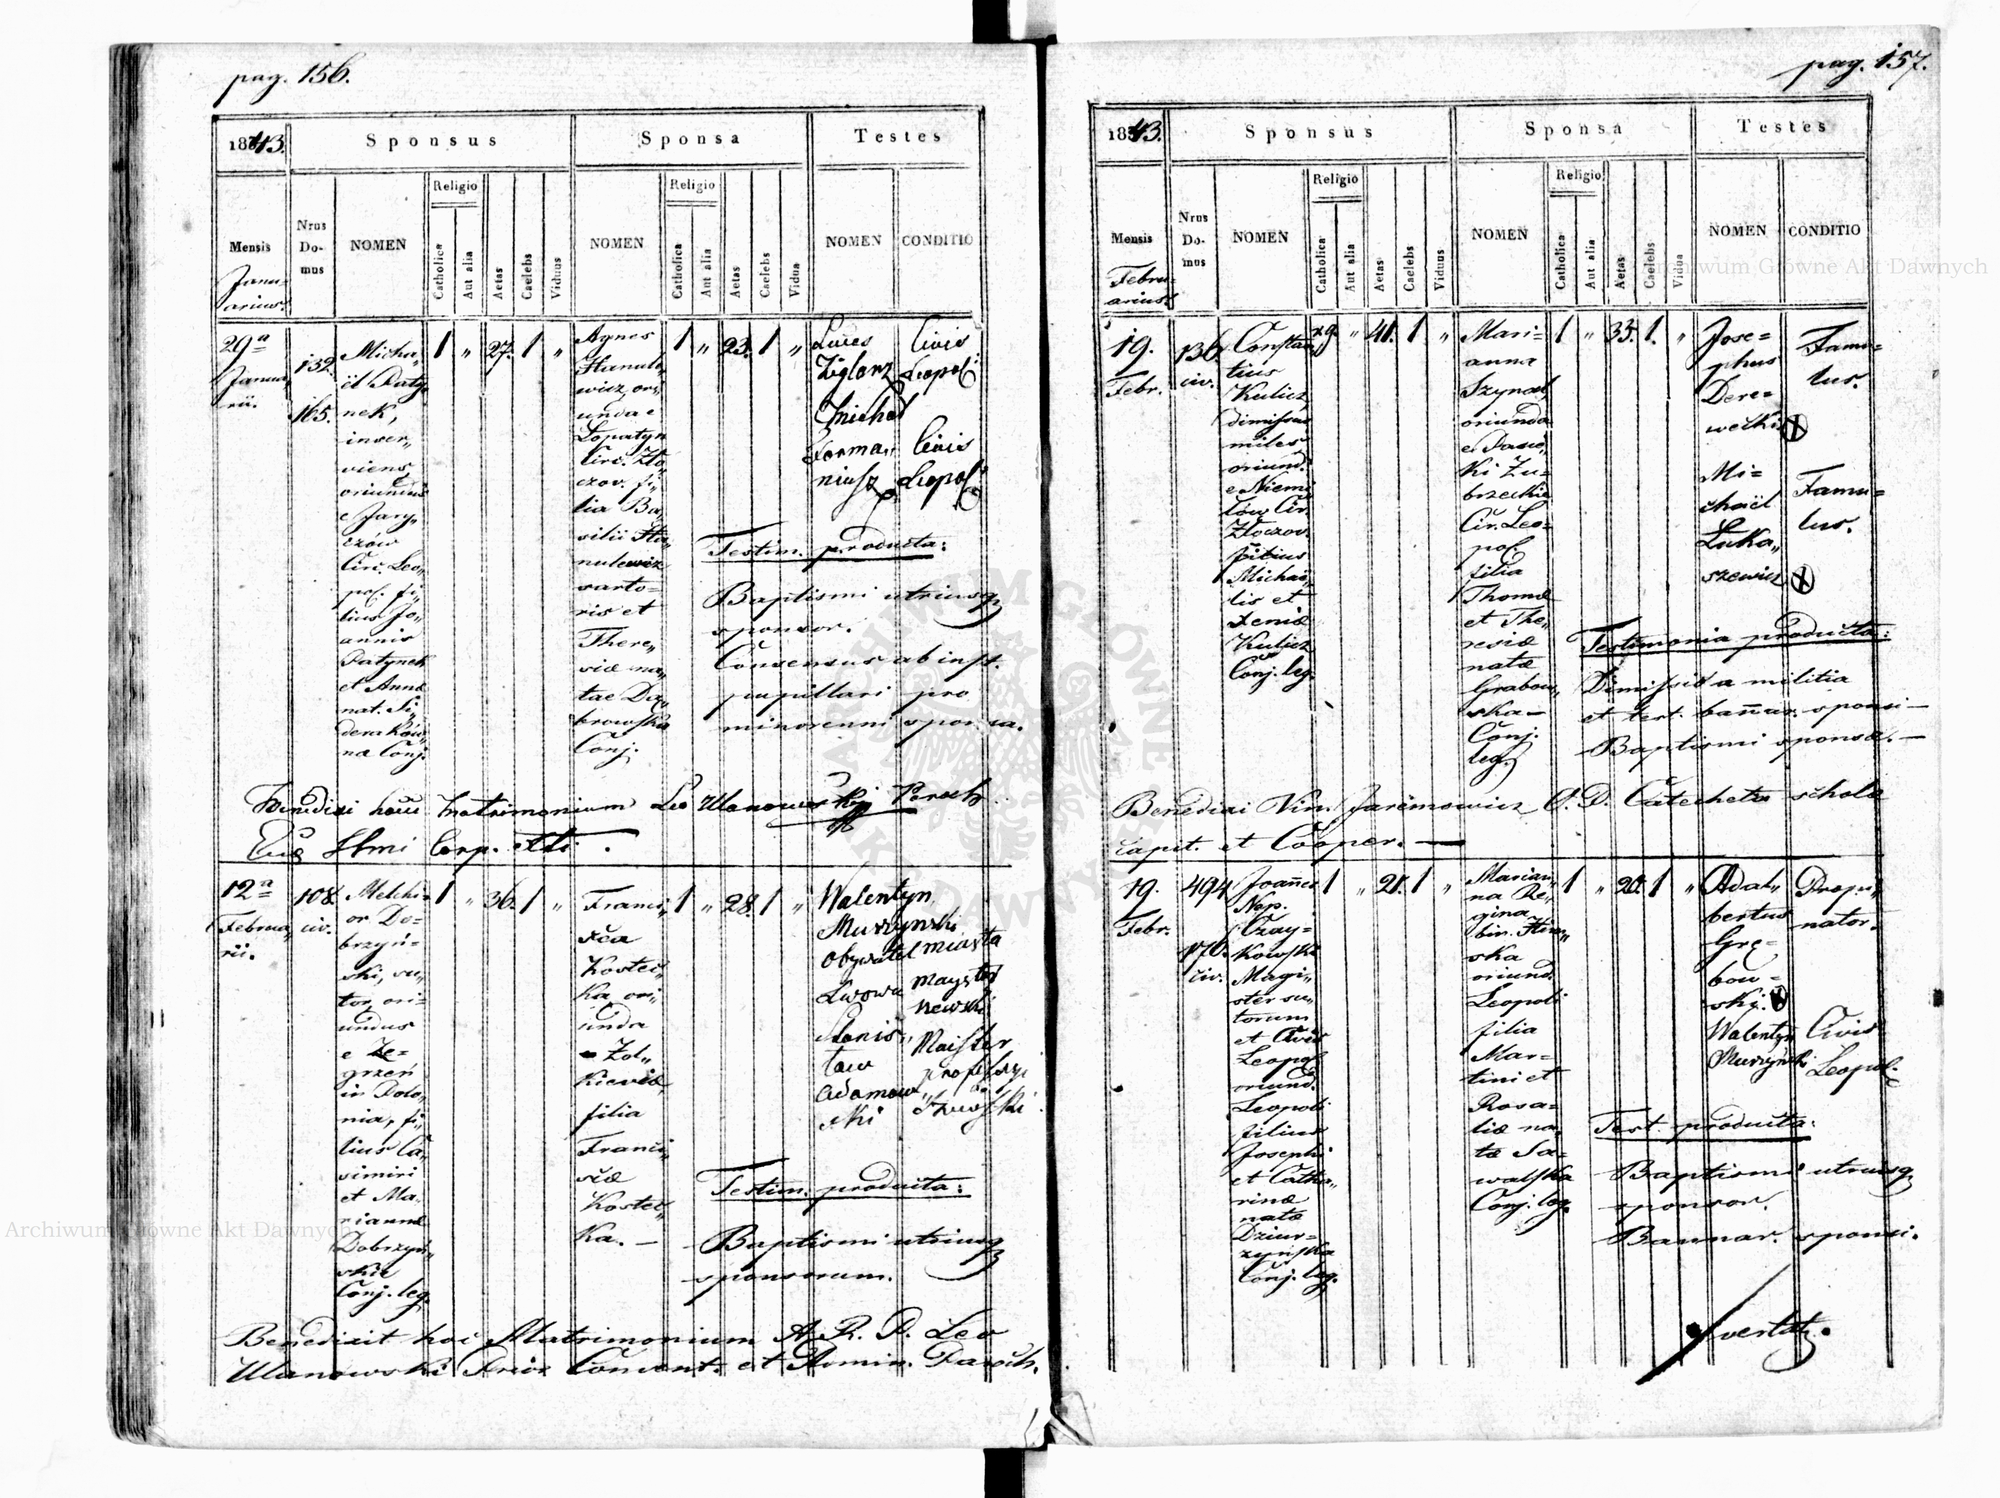 pag. 156.
1843.
Sponsus
Sponsa
Testes
Mensis
Janu-
arius.
Nrus
Do-
mus
NOMEN
Religio
Catholica
Aut alia
Aetas
Caelebs
Viduus
NOMEN
Religio
Catholica
Aut alia
Aetas
Caelebs
Vidua
NOMEN
CONDITIO
29a
Januа„
rii.
132.
165.
Micha„
ël Paty„
nek,
inser„
viens,
oriundus
e Jary„
czów
Circ. Leo„
pol. fi„
lius Jo„
annis
Patynek
et Annæ
nat. Si„
derakow„
na Conj.
1 „ 27. 1 „
Agnes
Hanule„
wicz, ori„
unda e
Lopatyn
Circ. Zło„
czov. fi„
lia Ba„
silii Ha„
nulewicz
sarto-
ris et
There„
siæ na„
tae Dą„
browska
Conj.
1 „ 23. 1 „
Lucas
Ziglarz
Michał
Forma„
niusz
Civis
Leopol:
Civis
Leopol:
Testim. producta:
Baptismi utriusq
sponsor.
Consensus ab inst.
pupillari pro
minorenni sponsa.
Benedixi hoc Matrimonium Leo Ulanowski Paroch.
Ecc̃æ Ssmi Corp. Xti.
12a
Februa„
rii.
108.
civ.
Melchi-
or Do-
brzyń-
ski, su„
tor, ori-
undus
e Ze-
grzeń
in Polo„
nia, fi„
lius Ca„
simiri
et Ma„
riannæ
Dobrzyń„
skie
Conj. leg.
1 „ 36. 1 „
Franci„
sca
Kostec„
ka ori„
unda
Zol„
kieviæ,
filia
Franci„
scæ
Kostec„
ka. —
1 „ 28. 1 „
Walentyn
Muszynski
Obywatel miasta
Lwowa mayster
szewski
Stanis„
ław
Adamow„
ski
Maister
profesyi
szewski.
Testim. producta:
Baptismi utriusq
sponsorum.
Benedixit hoc Matrimonium A. R. P. Leo
Ulanowski Prior Convent. et Admin. Paroch.
pag. 157.
1843.
Sponsus
Sponsa
Testes
Mensis
Febru-
arius.
Nrus
Do-
mus
NOMEN
Religio
Catholica
Aut alia
Aetas
Caelebs
Viduus
NOMEN
Religio
Catholica
Aut alia
Aetas
Caelebs
Vidua
NOMEN
CONDITIO
19.
Febr.
136.
civ.
Constan„
tius
Kulicz
dimissus
miles
oriund.
e Niemi„
łów Cir.
Złoczov.
filius
Michae„
lis et
Xeniæ
Kulicz
Conj. leg.
„ 41. 1 „
Mari-
anna
Szynal,
oriunda
e Pasie„
ki Zu-
brzeckie
Cir. Leo-
pol.
filia
Thomæ
et The„
resiæ
natæ
Grabow„
ska —
Conj.
leg.
1 „ 33. 1. „
Jose-
phus
Dere-
wecki
Mi-
chaël
Luka„
szewicz
Famu-
lus.
Famu-
lus.
Testimonia producta:
Dimissio a militia
et test. bannar. sponsi —
Baptismi sponsæ. —
Benedixi Vin. Jaremowicz O. P. Catecheta scholæ
capit. et Cooper. —
19.
Febr.
494
170.
civ.
Joannes
Nep.
Czay-
kowski
Magi-
ster su„
torum
et Civis
Leopol.
oriund.
Leopoli
filius
Josephi
et Catha„
rinæ
natæ
Dziur-
zyńska
Conj. leg.
1 „ 21. 1 „
Marian„
na Re„
gina
ska
oriund.
Leopoli
filia
Mar-
tini et
Rosa-
liæ na„
tæ Sa-
walska
Conj. leg.
1 „ 20. 1 „
Adal„
bertus
Grę-
bow-
ski.
Walentyn
Muszyński
Propi„
nator.
Civis
Leopol.
Test. producta:
Baptismi utriusq
sponsor.
Bannar. sponsi.
vertat.
Archiwum Główne Akt Dawnych
Archiwum Główne Akt Dawnych
ARCHIWUM GŁÓWNE AKT DAWNYCH